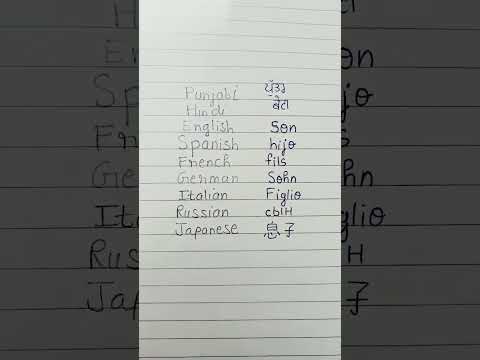 Punjabi ਪੁੱਤਰ
Hindi ਬੇਟਾ
English Son
Spanish hijo
French fils
German Sohn
Italian Figlio
Russian сын
Japanese 息子